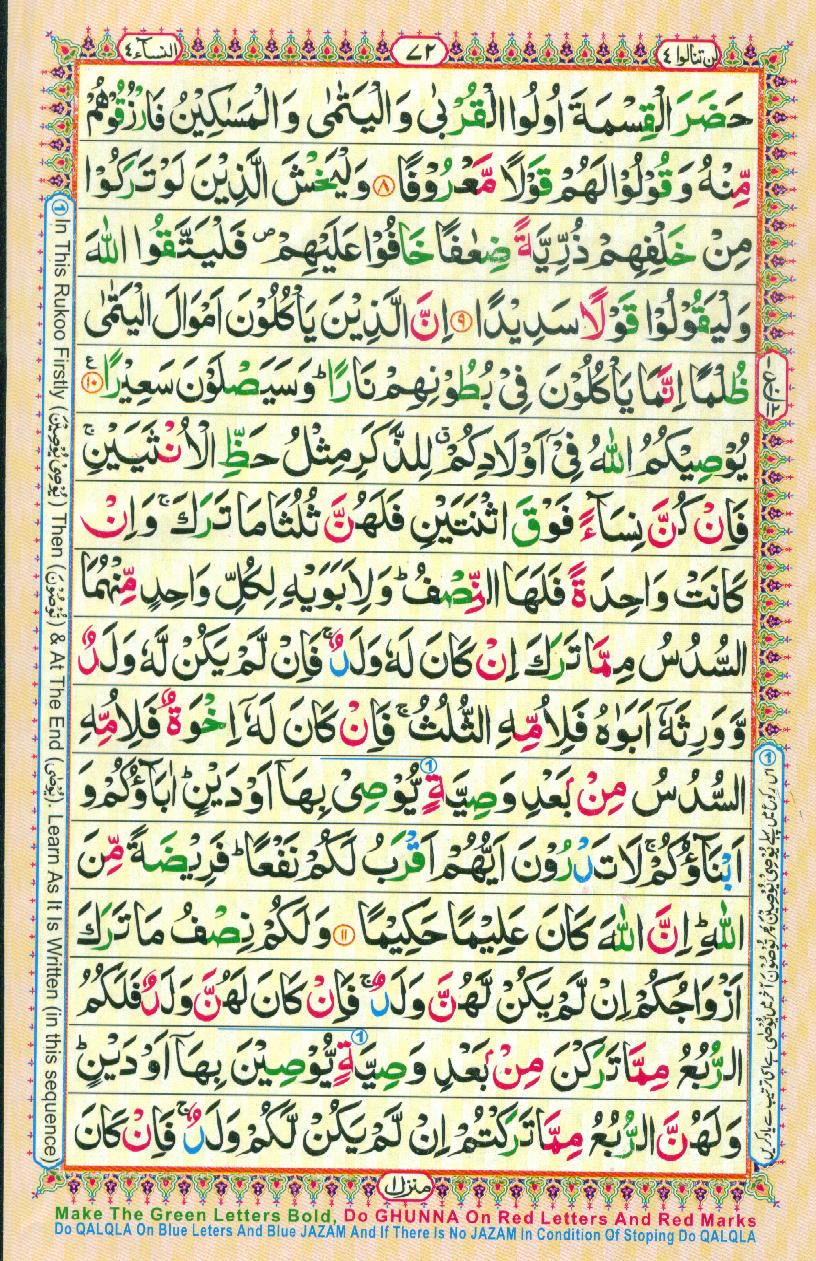 لن تنالوا ٤
٧٢
النسآء ٤
حَضَرَ الْقِسْمَةَ اُولُوا الْقُرْبٰى وَالْيَتٰمٰى وَالْمَسٰكِيْنُ فَارْزُقُوْهُمْ
مِّنْهُ وَقُوْلُوْا لَهُمْ قَوْلًا مَّعْرُوْفًا ۝۸ وَلْيَخْشَ الَّذِيْنَ لَوْ تَرَكُوْا
مِنْ خَلْفِهِمْ ذُرِّيَّةً ضِعٰفًا خَافُوْا عَلَيْهِمْ ۪ فَلْيَتَّقُوا اللّٰهَ
وَلْيَقُوْلُوْا قَوْلًا سَدِيْدًا ۝۹ اِنَّ الَّذِيْنَ يَاْكُلُوْنَ اَمْوَالَ الْيَتٰمٰى
ظُلْمًا اِنَّمَا يَاْكُلُوْنَ فِيْ بُطُوْنِهِمْ نَارًا ؕ وَسَيَصْلَوْنَ سَعِيْرًا ۝۱۰ ع
يُوْصِيْكُمُ اللّٰهُ فِيْۤ اَوْلَادِكُمْ ۗ لِلذَّكَرِ مِثْلُ حَظِّ الْاُنْثَيَيْنِ ۚ
فَاِنْ كُنَّ نِسَآءً فَوْقَ اثْنَتَيْنِ فَلَهُنَّ ثُلُثَا مَا تَرَكَ ۚ وَاِنْ
كَانَتْ وَاحِدَةً فَلَهَا النِّصْفُ ؕ وَلِاَبَوَيْهِ لِكُلِّ وَاحِدٍ مِّنْهُمَا
السُّدُسُ مِمَّا تَرَكَ اِنْ كَانَ لَهٗ وَلَدٌ ۚ فَاِنْ لَّمْ يَكُنْ لَّهٗ وَلَدٌ
وَّوَرِثَهٗۤ اَبَوٰهُ فَلِاُمِّهِ الثُّلُثُ ۚ فَاِنْ كَانَ لَهٗۤ اِخْوَةٌ فَلِاُمِّهِ
السُّدُسُ مِنْۢ بَعْدِ وَصِيَّةٍ يُّوْصِيْ بِهَاۤ اَوْ دَيْنٍ ؕ اٰبَآؤُكُمْ وَ
اَبْنَآؤُكُمْ ۚ لَا تَدْرُوْنَ اَيُّهُمْ اَقْرَبُ لَكُمْ نَفْعًا ؕ فَرِيْضَةً مِّنَ
اللّٰهِ ؕ اِنَّ اللّٰهَ كَانَ عَلِيْمًا حَكِيْمًا ۝۱۱ وَلَكُمْ نِصْفُ مَا تَرَكَ
اَزْوَاجُكُمْ اِنْ لَّمْ يَكُنْ لَّهُنَّ وَلَدٌ ۚ فَاِنْ كَانَ لَهُنَّ وَلَدٌ فَلَكُمُ
الرُّبُعُ مِمَّا تَرَكْنَ مِنْۢ بَعْدِ وَصِيَّةٍ يُّوْصِيْنَ بِهَاۤ اَوْ دَيْنٍ ؕ
وَلَهُنَّ الرُّبُعُ مِمَّا تَرَكْتُمْ اِنْ لَّمْ يَكُنْ لَّكُمْ وَلَدٌ ۚ فَاِنْ كَانَ
① In This Rukoo Firstly (يُوْصِيْ يُوْصِيْنَ) Then (تُوْصُوْنَ) & At The End (يُوْصٰى). Learn As It Is Written (in this sequence)
منزل ١
Make The Green Letters Bold, Do GHUNNA On Red Letters And Red Marks
Do QALQLA On Blue Leters And Blue JAZAM And If There Is No JAZAM In Condition Of Stoping Do QALQLA